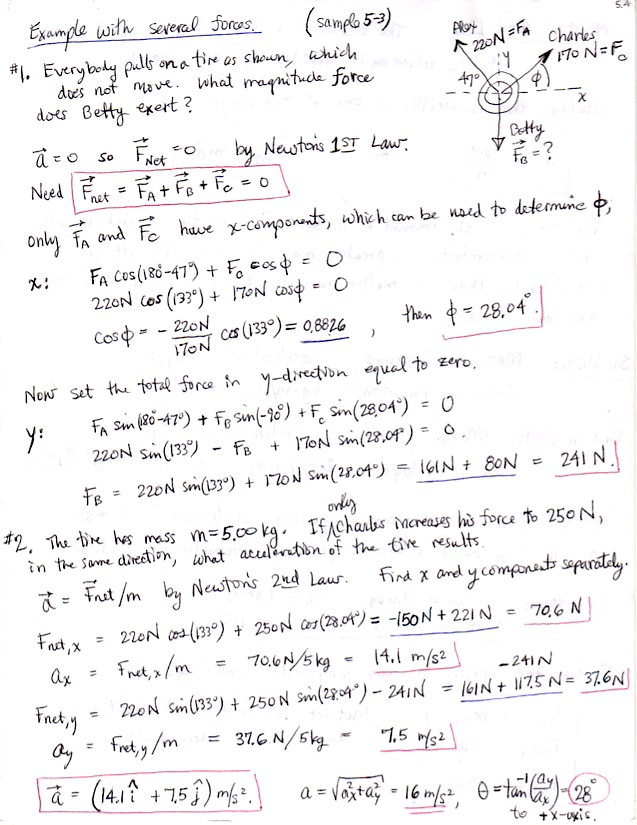 5.4
Example with several forces. (sample 5-3)
#1. Everybody pulls on a tire as shown, which
does not move. What magnitude force
does Betty exert?
Alex
220N = F_A
Charles
170 N = F_C
y
47°
φ
x
Betty
F⃗_B = ?
a⃗ = 0 so F⃗_Net = 0 by Newton's 1ST Law.
Need F⃗_net = F⃗_A + F⃗_B + F⃗_C = 0
only F⃗_A and F⃗_C have x-components, which can be used to determine φ,
x: F_A cos(180-47°) + F_C cos φ = 0
220N cos(133°) + 170N cosφ = 0
cosφ = - 220N/170N cos(133°) = 0.8826 , then φ = 28.04°.
Now set the total force in y-direction equal to zero.
y: F_A sin(180-47°) + F_B sin(-90°) + F_C sin(28.04°) = 0
220N sin(133°) - F_B + 170N sin(28.04°) = 0.
F_B = 220N sin(133°) + 170N sin(28.04°) = 161N + 80N = 241 N.
#2. The tire has mass m=5.00 kg. If only Charles increases his force to 250N,
in the same direction, what acceleration of the tire results.
a⃗ = F⃗net/m by Newton's 2nd Law. Find x and y components separately.
Fnet,x = 220N cos(133°) + 250N cos(28.04°) = -150N + 221N = 70.6 N
ax = Fnet,x/m = 70.6N/5kg = 14.1 m/s²
Fnet,y = 220N sin(133°) + 250N sin(28.04°) - 241N = 161N + 117.5N -241N = 37.6N
ay = Fnet,y/m = 37.6N/5kg = 7.5 m/s²
a⃗ = (14.1 î + 7.5 ĵ) m/s². a = √(ax²+ay²) = 16 m/s², θ = tan⁻¹(ay/ax) = 28°
to +x-axis.